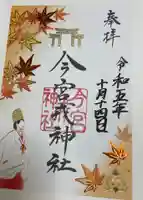 奉拝
令和五年
十月十四日
今宮戎神社
今宮
神社